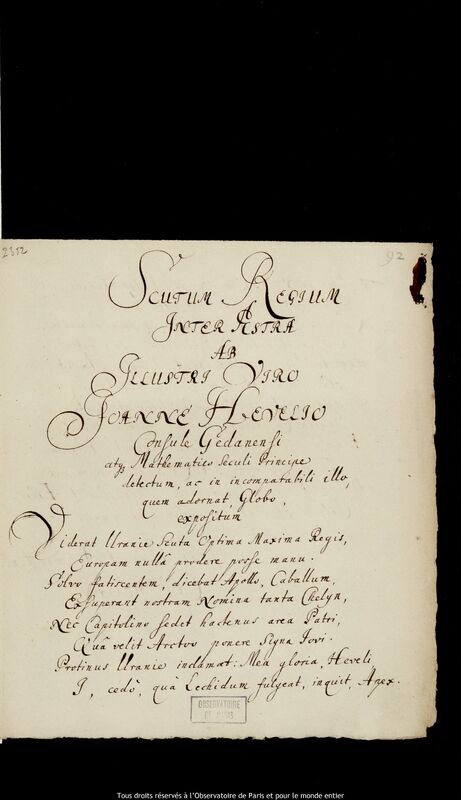 2352
92
Scutum Regium
Inter Astra
Ab
Illustri Viro
Joanne Hevelio
Consule Gedanensi
atq; Mathematico Seculi Principe
detectum, ac in incomparabili illo,
quem adornat, Globo,
expositum
Viderat Uranie Scuta Optima Maxima Regis,
Europam nullâ prodere posse manu.
Solvo fatiscentem, dicebat Apollo, Caballum,
Exsuperant nostram Nomina tanta Chelyn,
Nec Capitolino sedet hactenus area Patri,
Quâ velit Arctos ponere Signa Jovi.
Protinus Uranie inclamat: Mea gloria, Heveli
I, cedò, quà Lechidum fulgeat, inquit, Apex.
OBSERVATOIRE
DE PARIS
Tous droits réservés à l'Observatoire de Paris et pour le monde entier